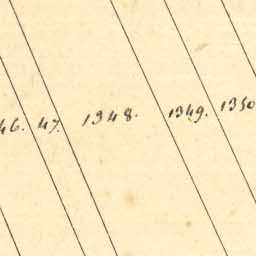 46. 47. 1348. 1349. 1350